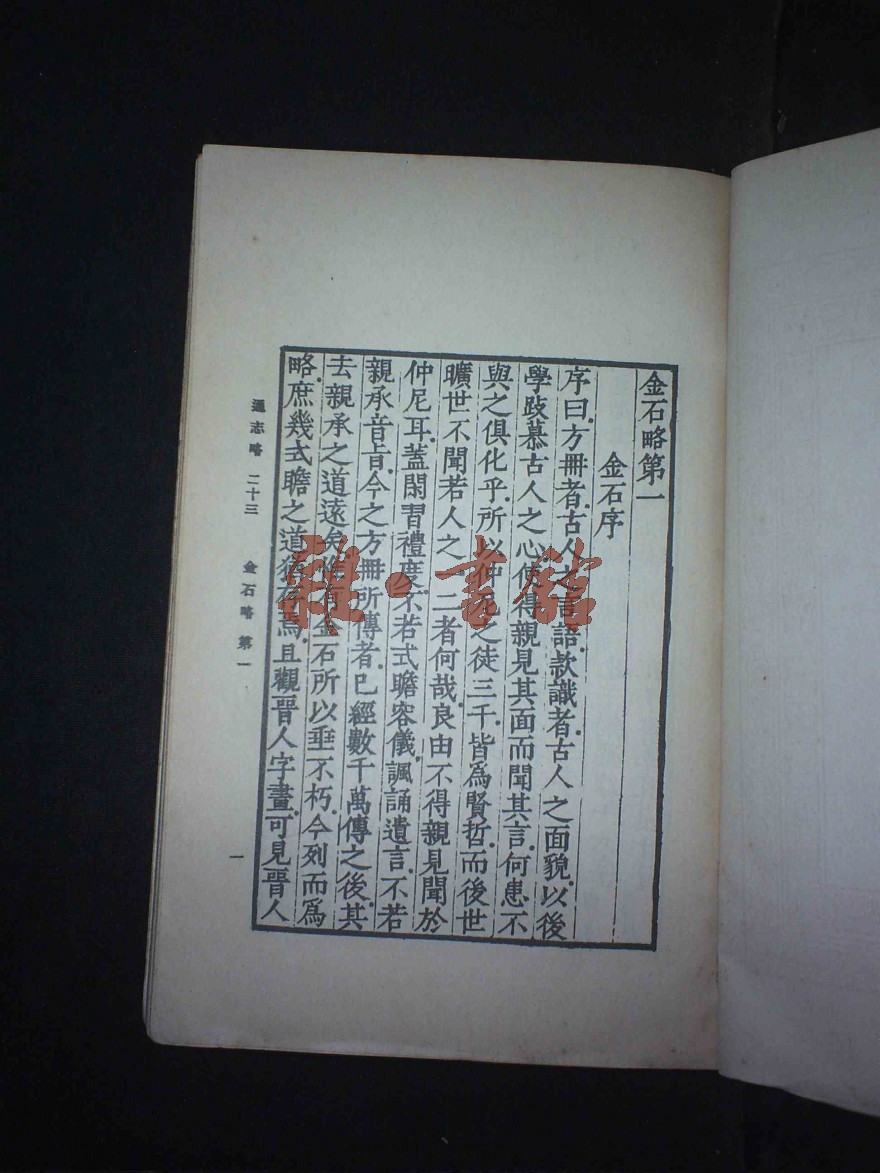 金石略第一
金石序
序曰.方冊者.古人之言語.款識者.古人之面貌.以後
學跂慕古人之心.使得親見其面而聞其言.何患不
與之俱化乎.所以仲尼之徒三千.皆爲賢哲.而後世
曠世不聞若人之一二者何哉.良由不得親見聞於
仲尼耳.蓋閑習禮度.不若式瞻容儀.諷誦遺言.不若
親承音旨.今之方冊所傳者.已經數千萬傳之後.其
去親承之道遠矣.惟有金石所以垂不朽.今列而爲
略.庶幾式瞻之道猶存焉.且觀晉人字畫.可見晉人
通志略 二十三 金石略 第一 一
雜·書館